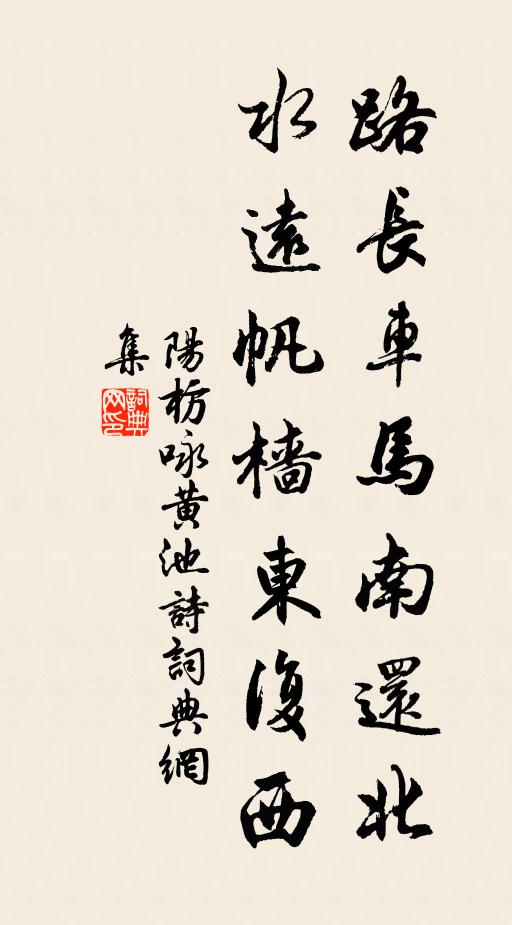 路長車馬南還北
水遠帆檣東復西
陽枋咏黃池詩詞典網
集
詞典
网印